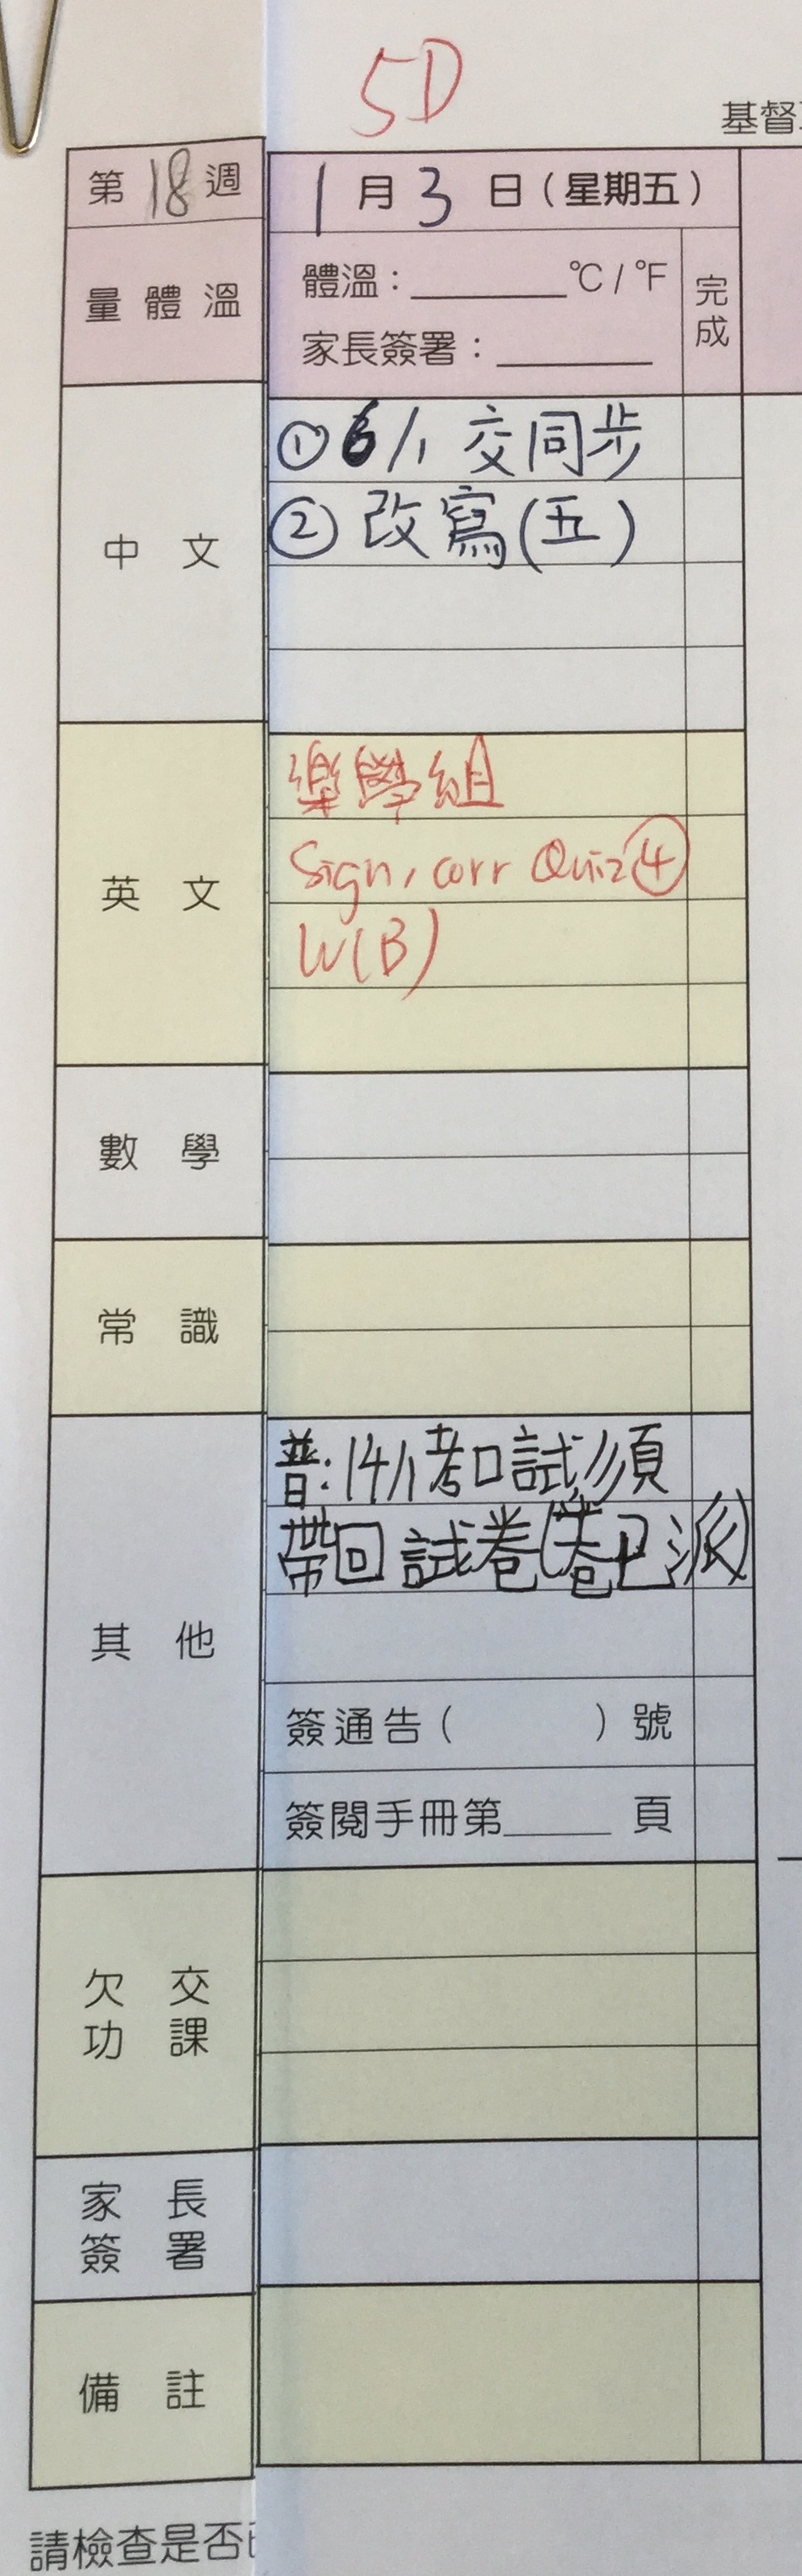 5D
基督
第18週
1月3日（星期五）
量體溫
體溫：______℃/℉
家長簽署：______
完成
中文
①6/1 交同步
②改寫(五)
英文
樂學組
Sign, corr Quiz④
W(B)
數學
常識
其他
普:14/1考口試,須
帶回試卷(卷已派)
簽通告（　　）號
簽閱手冊第_____頁
欠交
功課
家長
簽署
備註
請檢查是否已